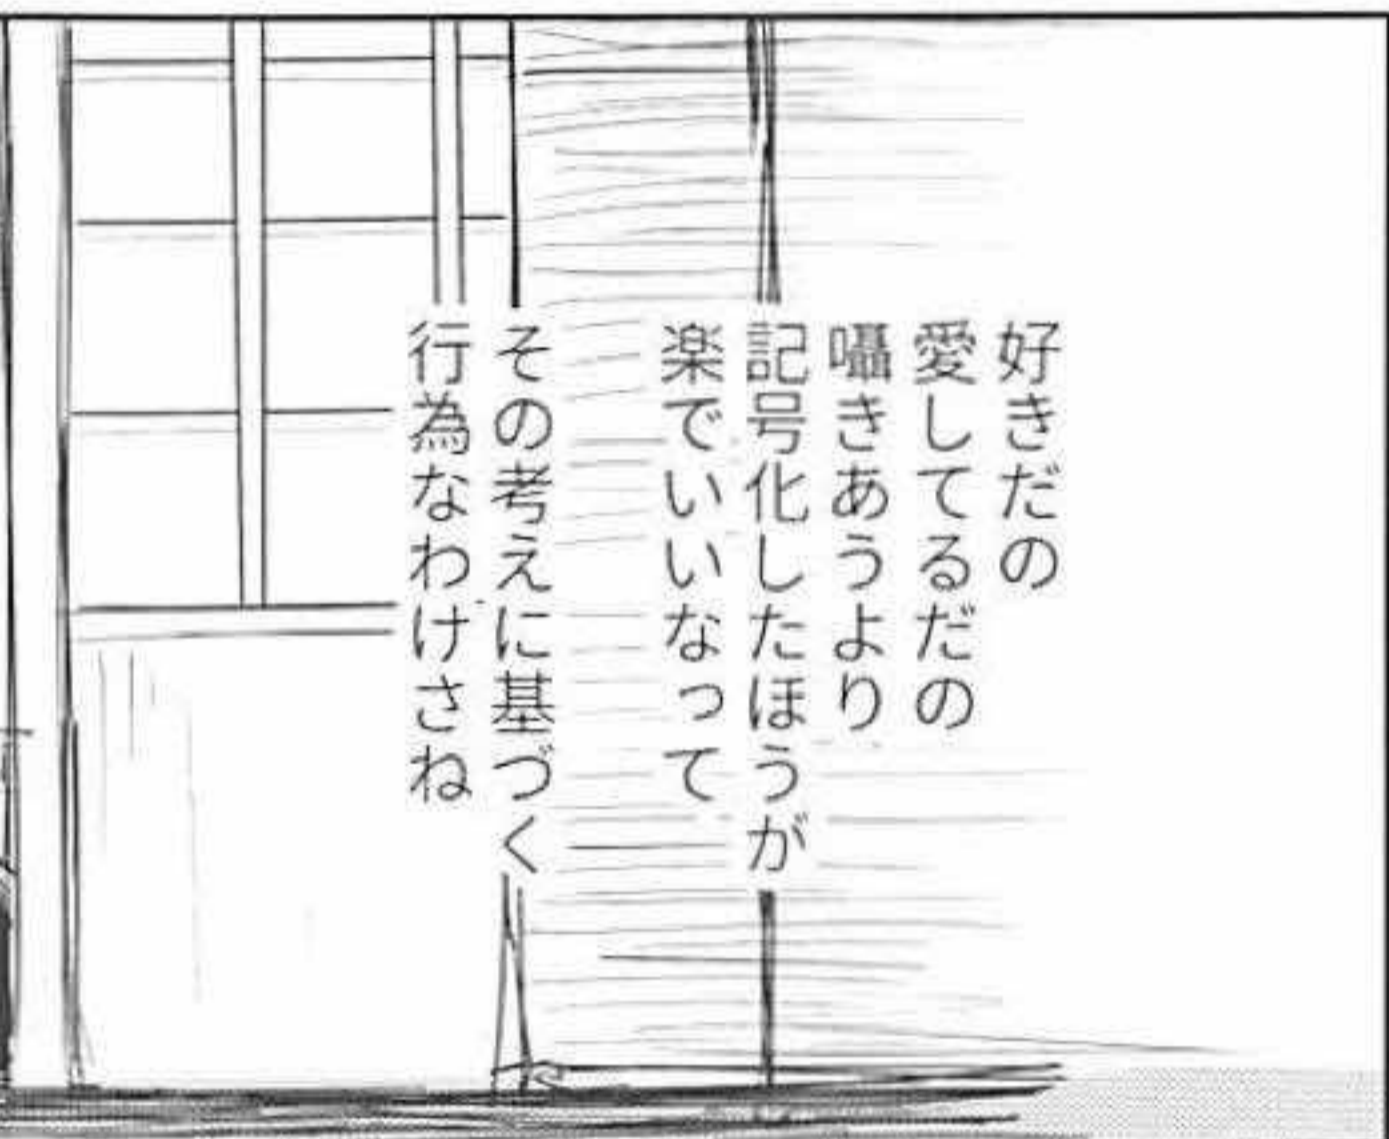 好きだの
愛してるだの
囁きあうより
記号化したほうが
楽でいいなって
その考えに基づく
行為なわけさね